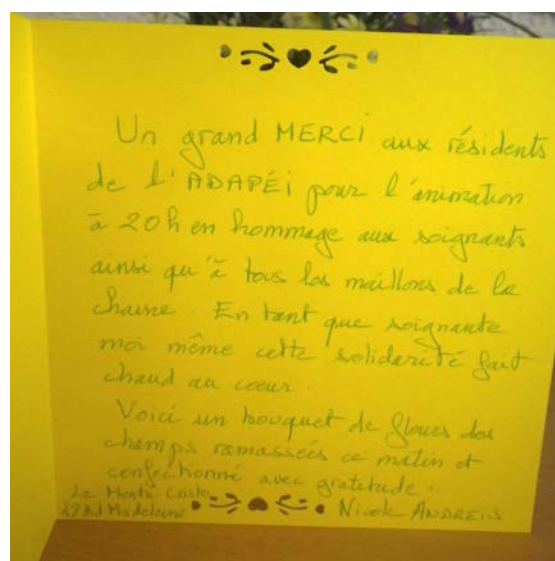 Un grand MERCI aux résidents
de l'ADAPÉi pour l'animation
à 20h en hommage aux soignants
ainsi qu'à tous les maillons de la
chaine. En tant que soignante
moi même cette solidarité fait
chaud au coeur.
Voici un bouquet de fleurs des
champs ramassées ce matin et
confectionné avec gratitude.
Le Monte Cristo
Bd Madeleine
Nicole ANDREIS